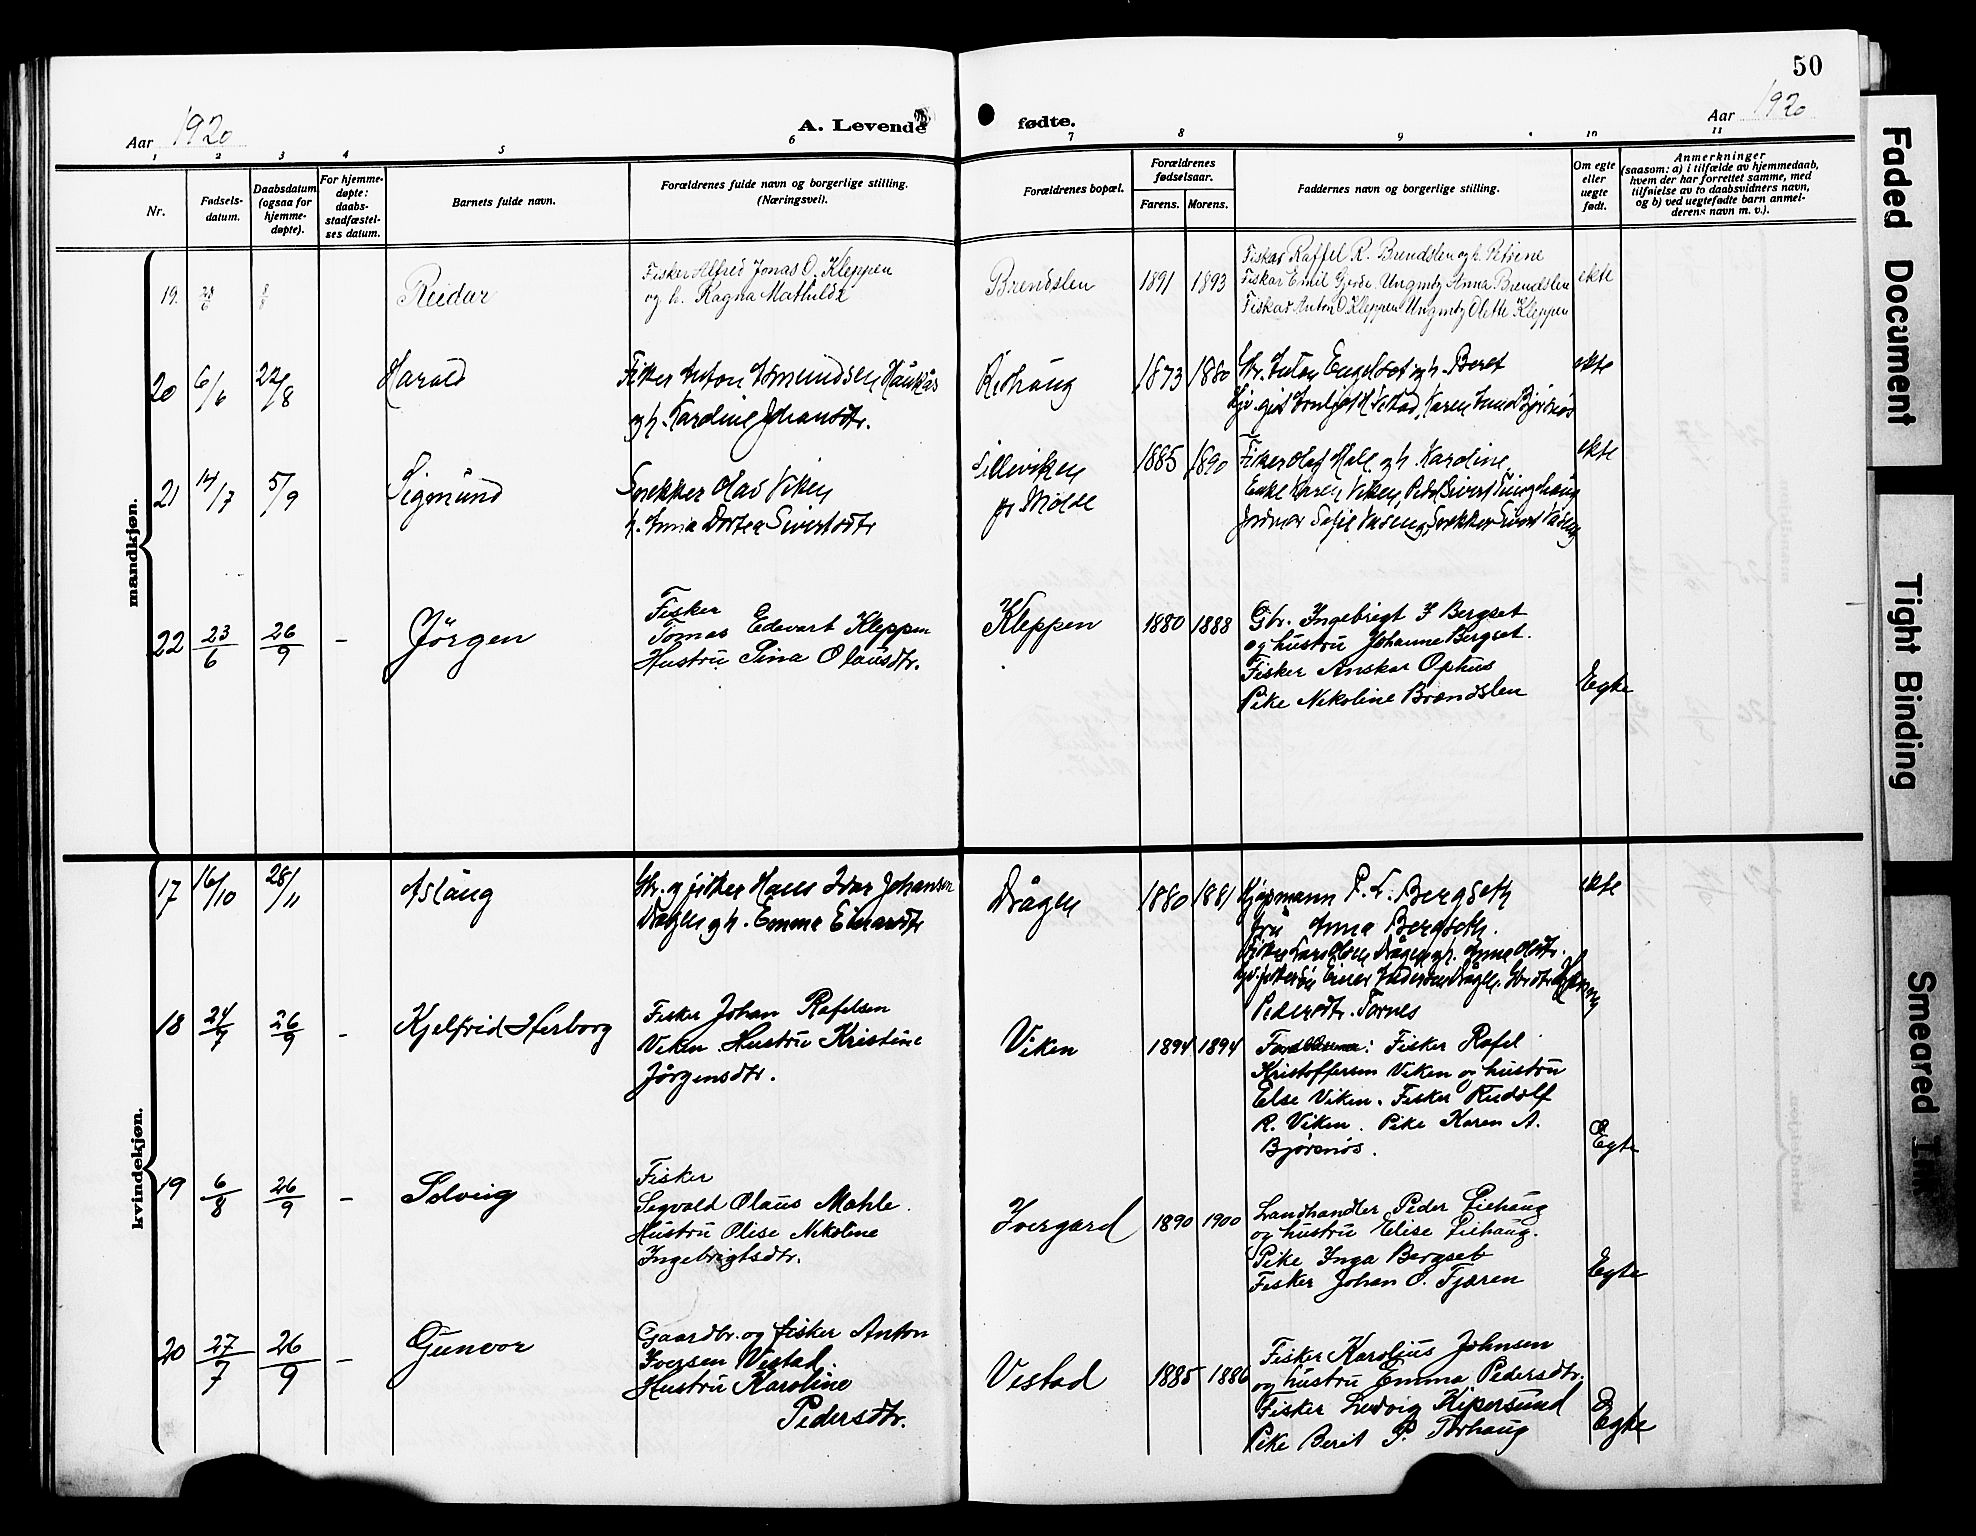 50
Aar 1920
A. Levende fødte.
Aar 1920
1 2 3 4 5 6 7 8 9 10 11
Nr.
Fødsels-
datum.
Daabsdatum
(ogsaa for
hjemme-
døpte).
For hjemme-
døpte:
daabs-
stadfæstel-
ses datum.
Barnets fulde navn.
Forældrenes fulde navn og borgerlige stilling.
(Næringsvei).
Forældrenes bopæl.
Forældrenes
fødselsaar.
Farens. Morens.
Faddernes navn og borgerlige stilling.
Om egte
eller
uegte
født.
Anmerkninger
(saasom: a) i tilfælde av hjemmedaab,
hvem der har forrettet samme, med
tilføielse av to daabsvidners navn,
og b) ved uegtefødte barn anmel-
derens navn m. v.).
mandkjøn.
19. 28/6 8/8 Reidar
Fisker Alfred Jonas O. Kleppen
og h. Ragna Mathilde
Brendslen 1891 1893
Fiskar Raffel R. Brendslen og h. Petrine
Fiskar Emil Gjerde. Ungmøy Anna Brendslen
Fiskar Anton O. Kleppen Ungmøy Olette Kleppen
ekte
20 6/6 22/8 Harald
Fisker Anton Amundsen Hauknes
og h. Karoline Johansdtr.
1873 1880
Gbr. Anton Engelset og h. Beret
ekte
21 14/7 5/9 Sigmund
Snekker Olav Viken
h. Anna Dortea Sivertsdtr
pr Molde
1885 1890
Fisker Olaf Male og h. Karoline
ekte
22 23/6 26/9 – Jörgen
Fisker
Tomas Edevart Kleppen
Hustru Sina Olausdtr.
Kleppen 1880 1888
Gbr. Ingebrigt I Bergset
og hustru Johanne Bergset.
Fisker Anskar Ophus
Pike Nekoline Brændslen
Egte
kvindekjøn.
17 16/10 28/11 Aslaug
Gbr. og fisker Hans Ivar Johansen
Drågen og h. Emma Edvardtr
Drågen 1880 1881
Kjøpmann P. L. Bergseth
fru Anna Bergseth.
Pedersdtr. Tornes
ekte
18 24/7 26/9 – Kjelfrid Herborg
Fisker Johan Rafelsen
Viken. Hustru Kristine
Jörgensdtr.
Viken 1894 1894
Forældrene: Fisker Rafel
Kristoffersen Viken og hustru
Else Viken. Fisker Rudolf
R. Viken. Pike Karen A.
Bjørsnøs.
Egte
19 6/8 26/9 – Solveig
Fisker
Segvald Olaus Mahle.
Hustru Olise Nekoline
Ingebrigtsdtr.
Ivergard 1890 1900
Landhandler Peder Liehaug
og hustru Elise Liehaug.
Pike Inga Bergset
Fisker Johan O. Tjæren
Egte
20 27/7 26/9 – Gunvor
Gaardbr. og fisker Anton
Iversen Vestad.
Hustru Karoline
Pedersdtr.
Vestad 1885 1886
Fisker Karolius Johnsen
og hustru Emma Pedersdtr.
Fisker Ludvig Kipersund
Pike Berit P. Torhaug
Egte
Faded Document
Tight Binding
Smeared Ink